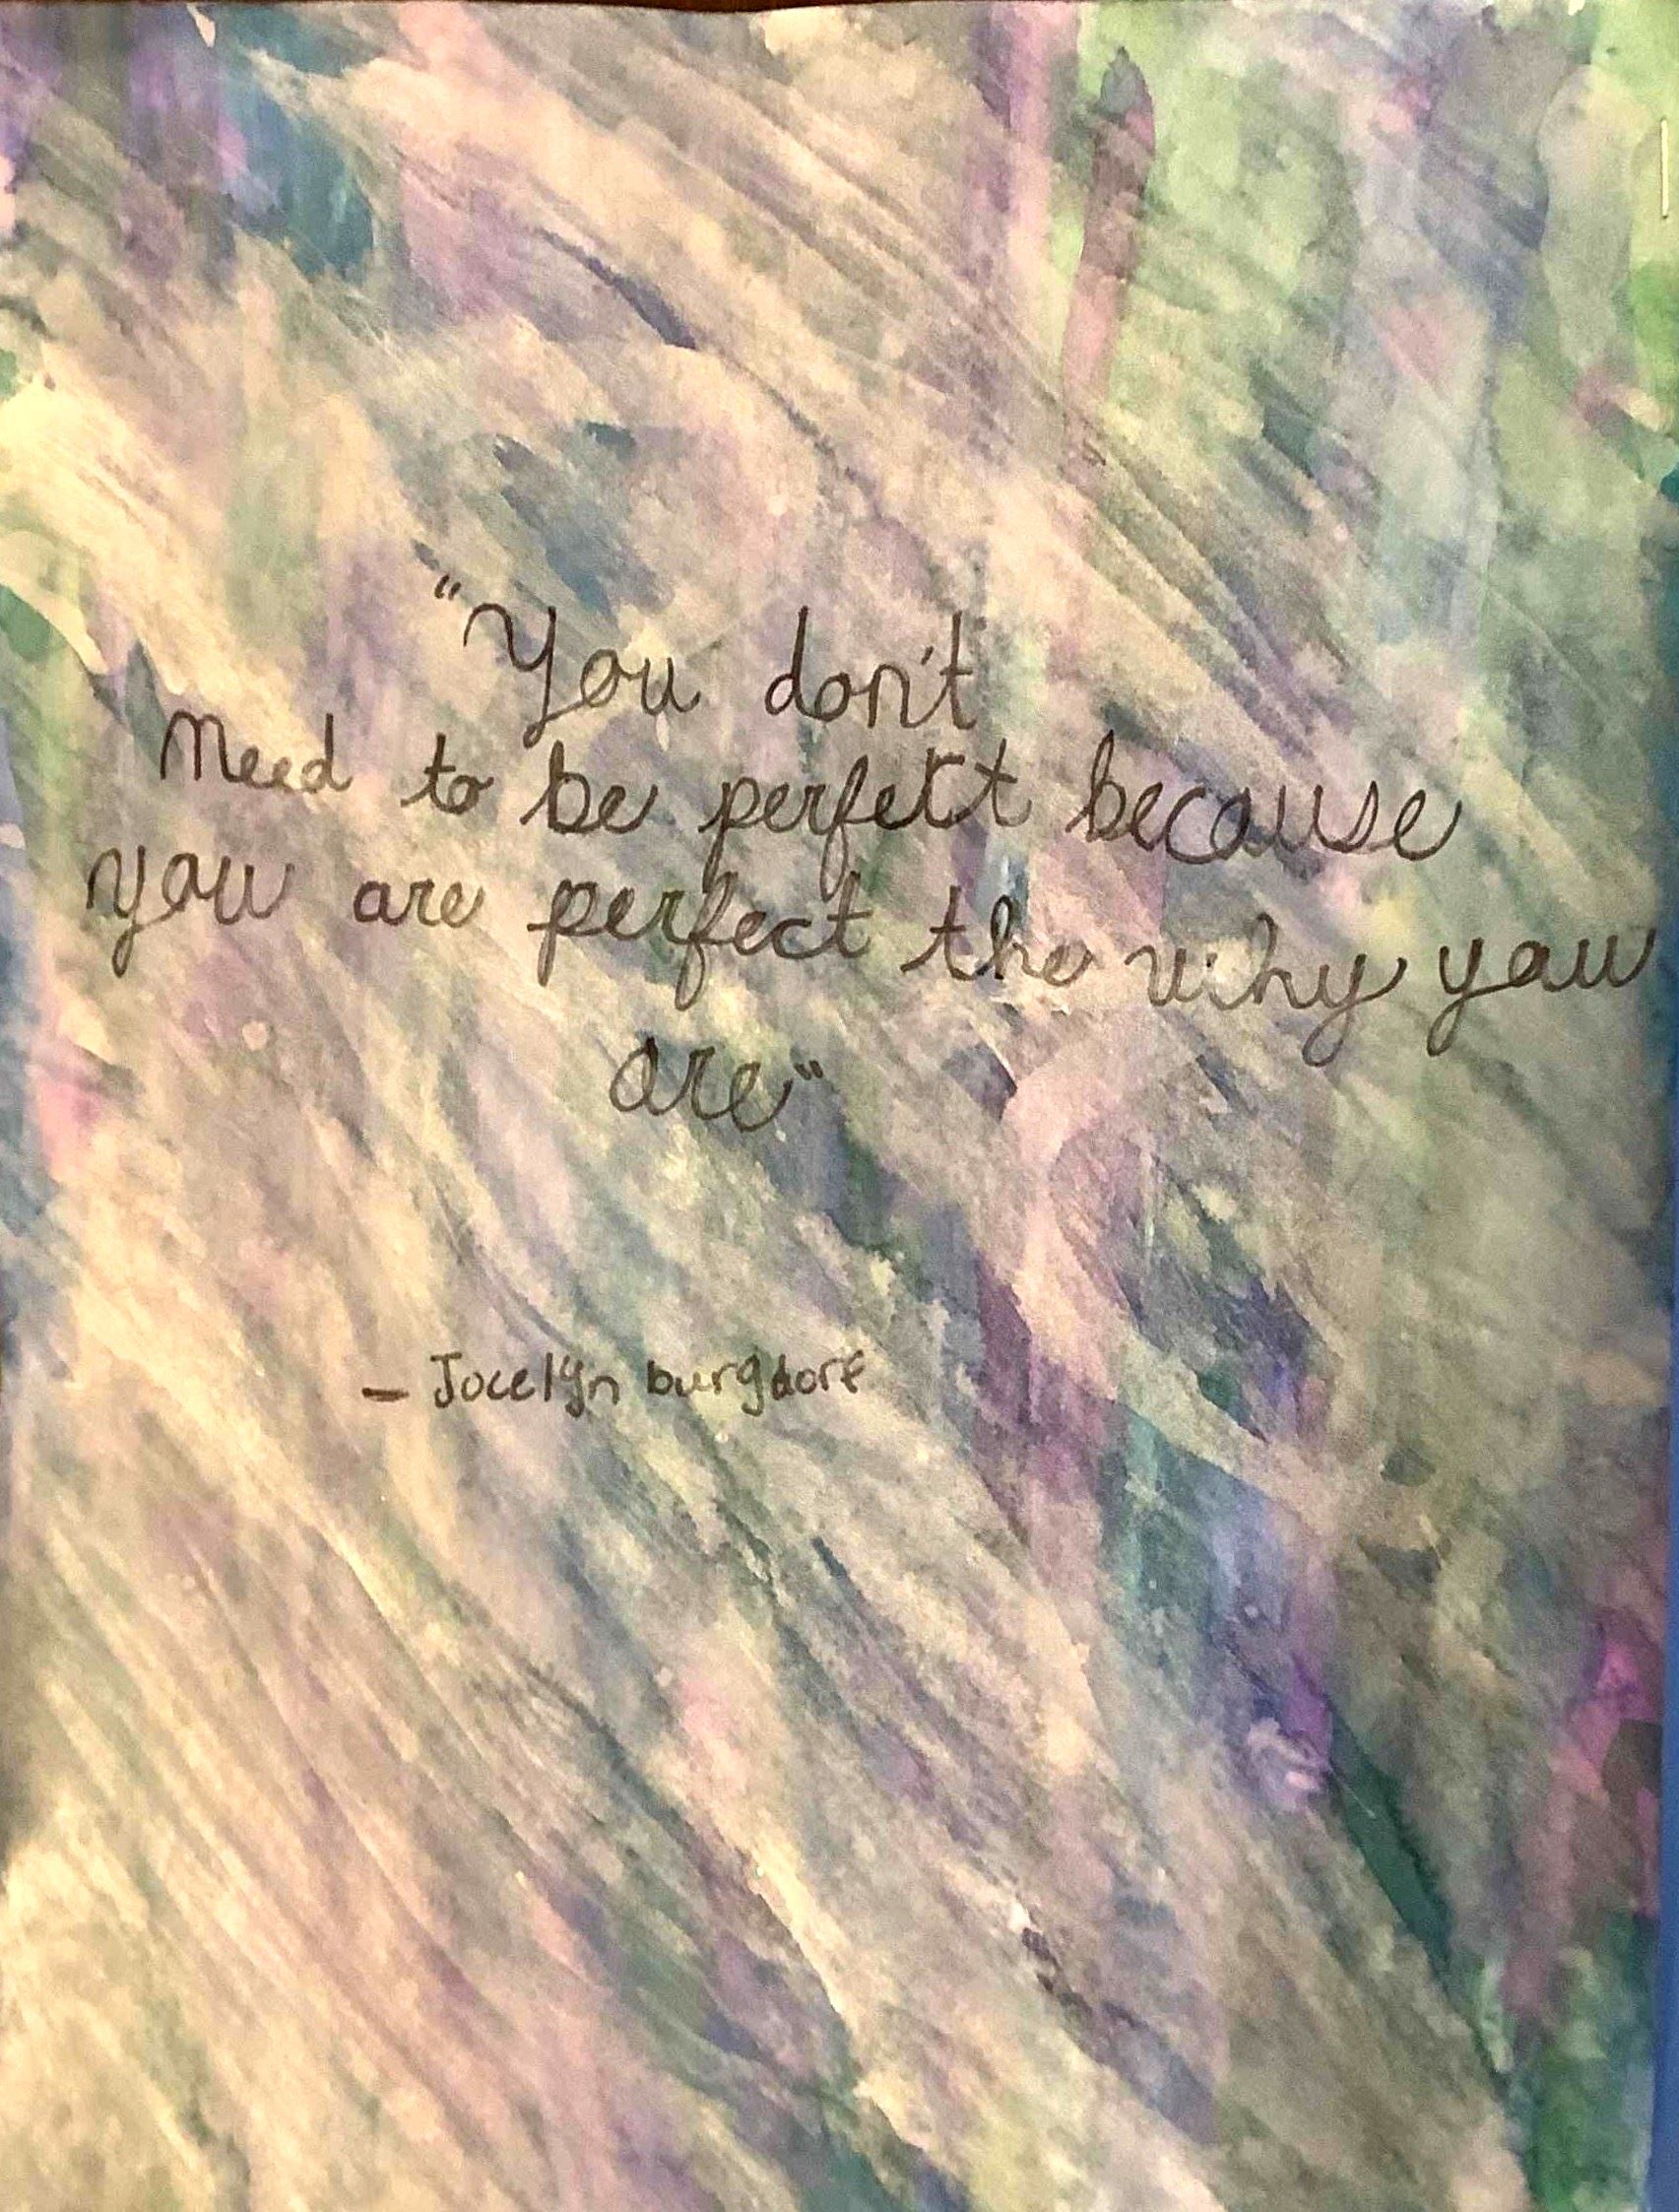 "You don't
need to be perfect because
you are perfect the why you
are"
- Jocelyn burgdorf